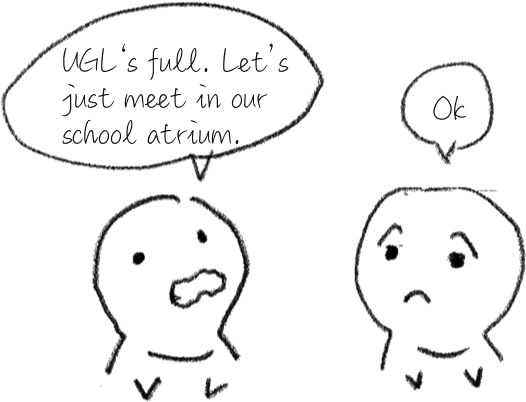 UGL's full. Let's
just meet in our
school atrium.
Ok